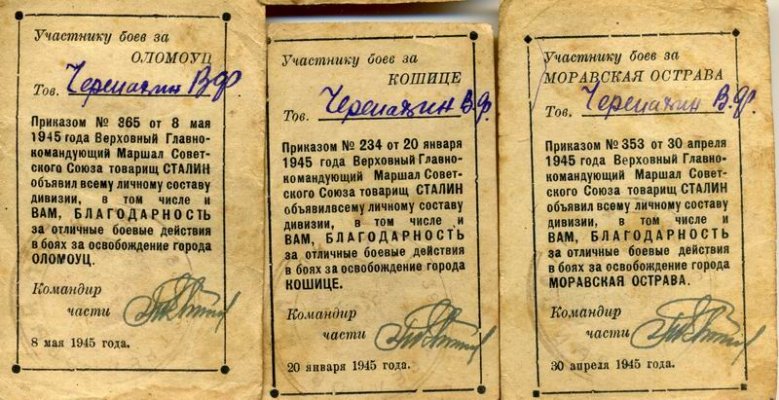 Участнику боев за
ОЛОМОУЦ
Тов. Черепахин В.Ф.
Приказом № 365 от 8 мая
1945 года Верховный Главно-
командующий Маршал Совет-
ского Союза товарищ СТАЛИН
объявил всему личному составу
дивизии, в том числе и
ВАМ, БЛАГОДАРНОСТЬ
за отличные боевые действия
в боях за освобождение города
ОЛОМОУЦ.
Командир
части
8 мая 1945 года.
Участнику боев за
КОШИЦЕ
Тов. Черепахин В.Ф.
Приказом № 234 от 20 января
1945 года Верховный Главно-
командующий Маршал Совет-
ского Союза товарищ СТАЛИН
объявилвсему личному составу
дивизии, в том числе и
ВАМ, БЛАГОДАРНОСТЬ
за отличные боевые действия
в боях за освобождение города
КОШИЦЕ.
Командир
части
20 января 1945 года.
Участнику боев за
МОРАВСКАЯ ОСТРАВА
Тов. Черепахин В.Ф.
Приказом № 353 от 30 апреля
1945 года Верховный Главно-
командующий Маршал Совет-
ского Союза товарищ СТАЛИН
объявил всему личному составу
дивизии, в том числе и
ВАМ, БЛАГОДАРНОСТЬ
за отличные боевые действия
в боях за освобождение города
МОРАВСКАЯ ОСТРАВА.
Командир
части
30 апреля 1945 года.